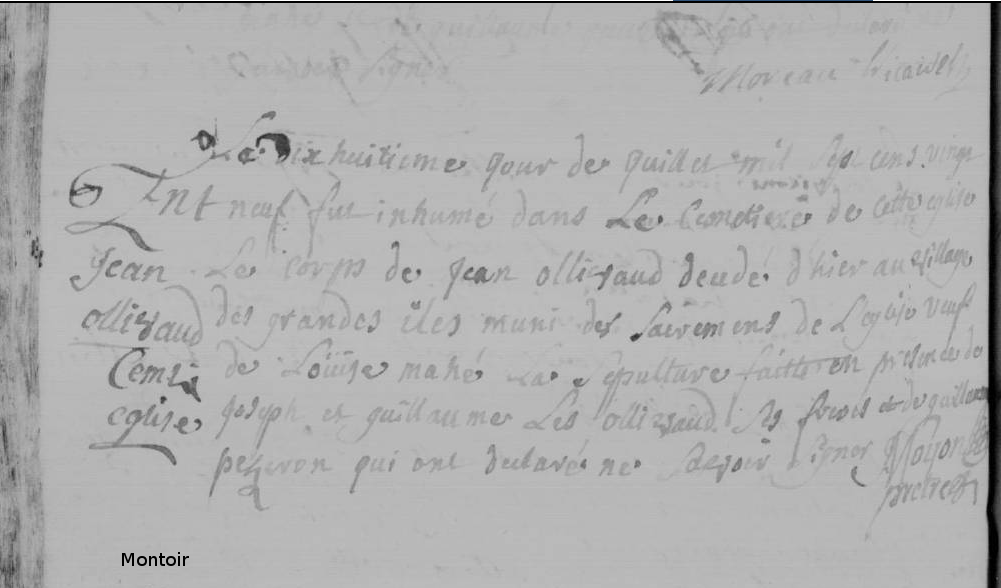 Moreau Vicaire
Le dix huitieme jour de juillet mil sept cens vingt
Ent neuf fut inhumé dans Le Cimetiere de cette eglise
Jean Le corps de Jean ollivaud decedé d'hier au village
ollivaud des grandes iles muni des sacremens de L'eglise veuf
de Loüise mahé La sepulture faitte en presence de
eglise joseph et guillaume Les ollivaud ses freres et de guillaume
pezeron qui ont declaré ne scavoir signer
pretre
Montoir